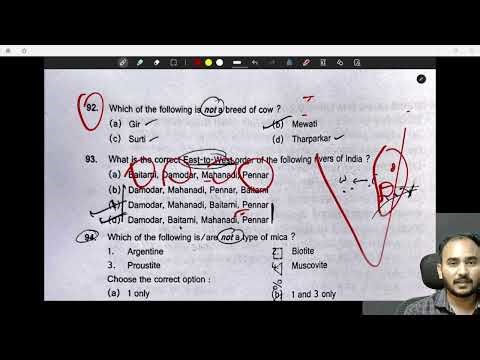 92. Which of the following is not a breed of cow ?
(a) Gir (b) Mewati
(c) Surti (d) Tharparkar
93. What is the correct East-to-West order of the following rivers of India ?
(a) Baitarni, Damodar, Mahanadi, Pennar
(b) Damodar, Mahanadi, Pennar, Baitarni
Damodar, Mahanadi, Baitarni, Pennar
(d) Damodar, Baitarni, Mahanadi, Pennar
94. Which of the following is/are not a type of mica ?
1. Argentine 2. Biotite
3. Proustite 4. Muscovite
Choose the correct option :
(a) 1 only (b) 1 and 3 only